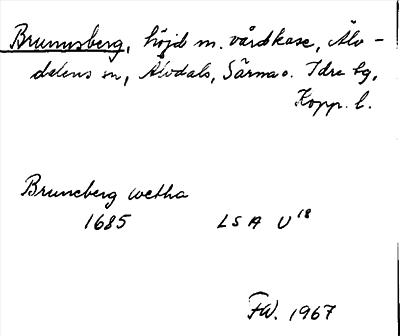 Brunnsberg, höjd m. vårdkase, Älv-
dalens sn, Älvdals, Särna o. Idre tg,
Kopp. l.
Bruneberg wetha
1685 LSA U18
FW. 1967